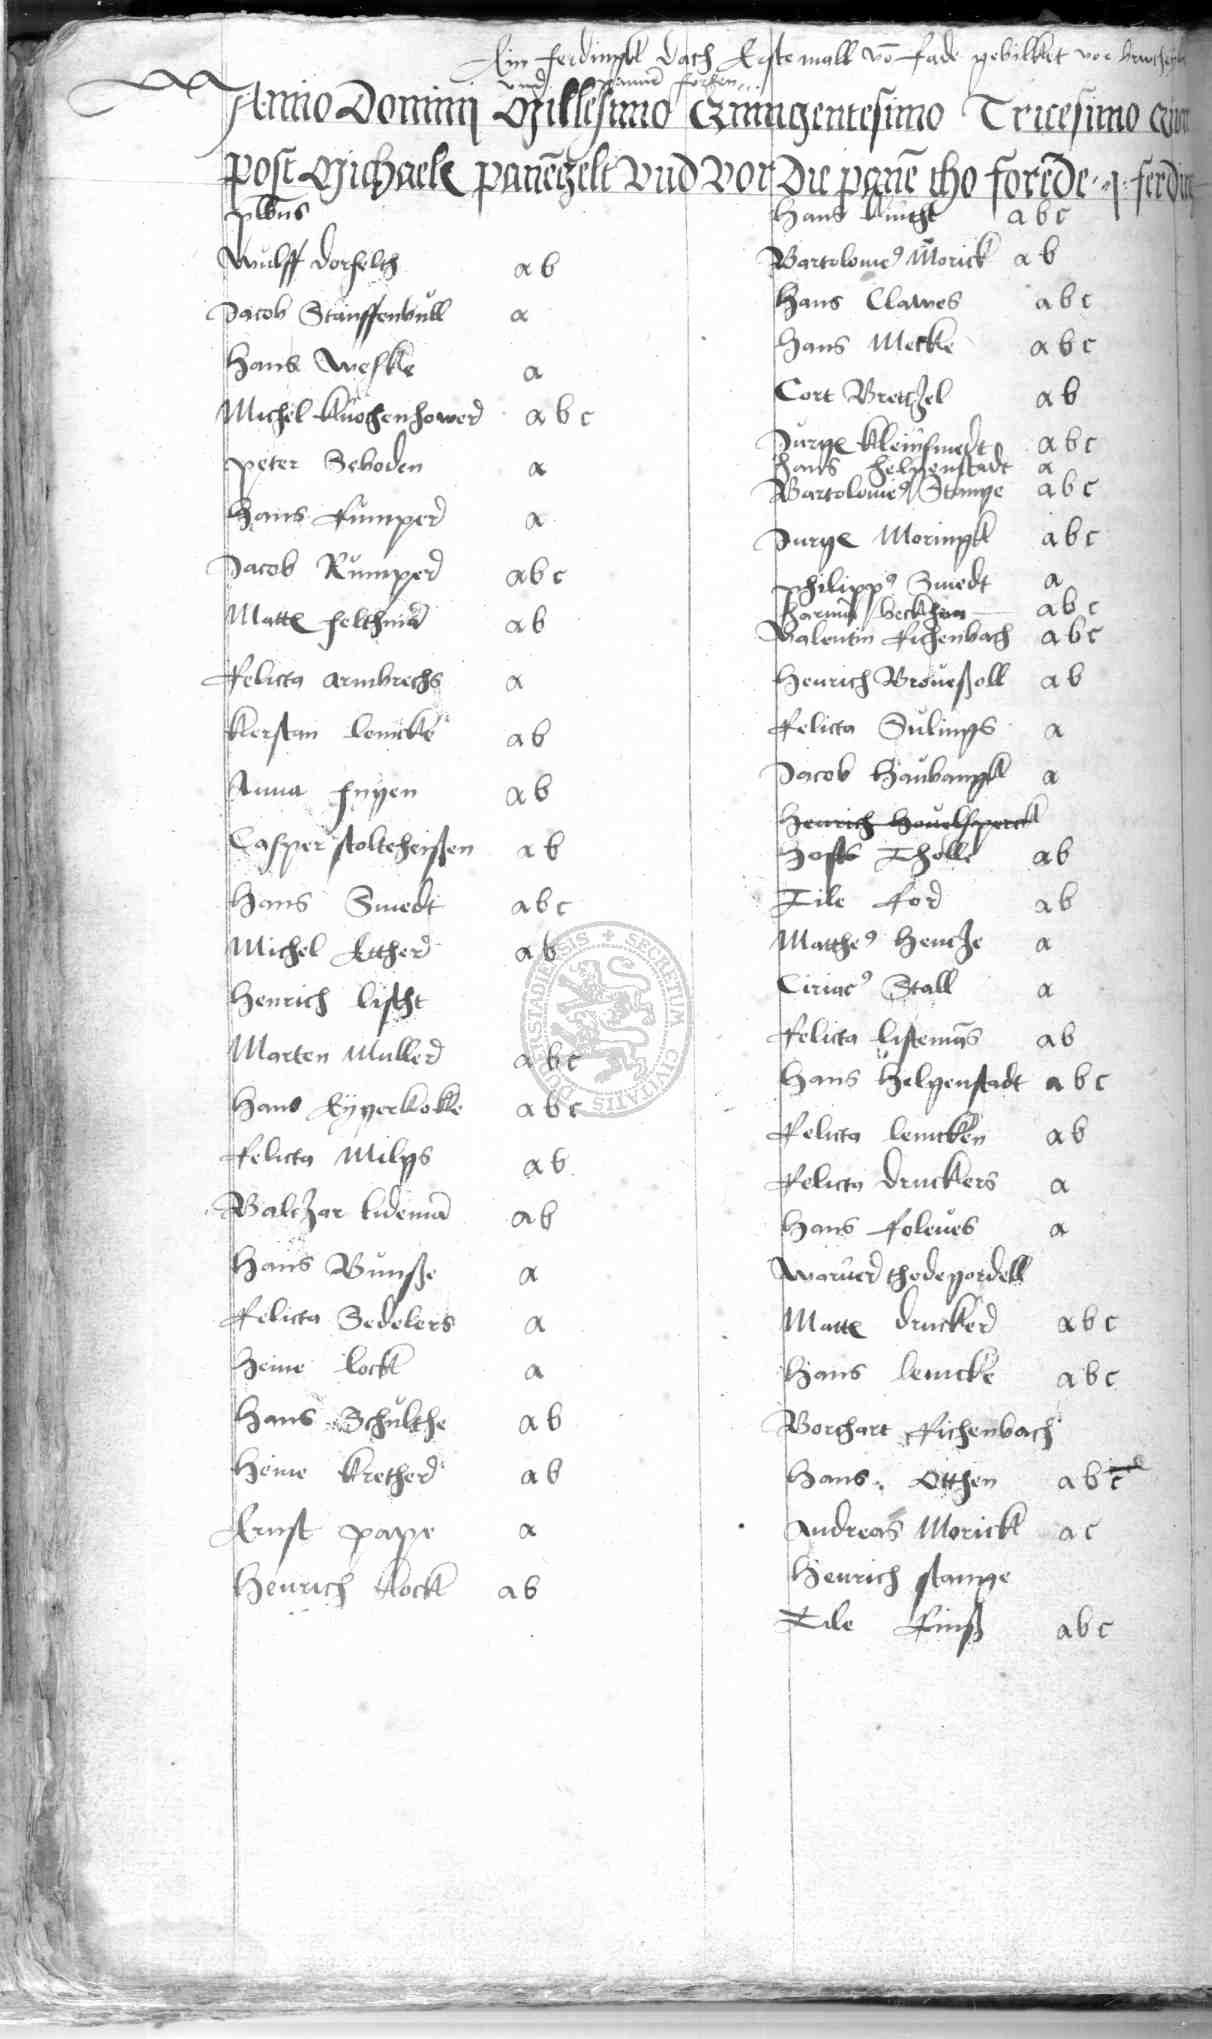 Ein ferdingk dach Erste mall vō Rade gebilliket vor
und panne forhen
Anno Domini Millesimo Quingentesimo Tricesimo
post Michaelē panēgelt vnd vor die panē tho forēde
plb̄ns
Wulff dorfelth a b
Jacob Stauffenbull a
Hans Weske a
Michel knochenhower a b c
peter Seboden a
Hans Rumper a
Jacob Rumper a b c
Matte felthmā a b
Relicta armbrechs a
Kerstan lemcke a b
Anna Inyen a b
Casper stolteheißen a b
Hans Smedt a b c
Michel Ether a b
Henrich lischt
Marten Muller a b c
Hans Eyyerkokke a b c
Relicta Milges a b
Baltzar tidemā a b
Hans Bunße a
Relicta Sedelers a
Heine lock a
Hans Schulthe a b
Heine krether a b
Ernst pape a
Henrich kock a b
Hans knicht a b c
Bartolomeꝰ Morick a b
Hans Clawes a b c
Hans Mecke a b c
Cort Brettzel a b
Jurge kleinsmedt a b c
hans helgenstadt a
Bartolomeꝰ Stange a b c
Jurge Moringk a b c
philippꝰ Smedt a
harmā beckhan a b c
Valentin Richenbach a b c
Henrich Broueßoll a b
Relicta Sulings a
Jacob Haubangk a
Henrich Houelsperck
Josts Tholle a b
Tile for a b
Mattheꝰ Hentze a
Ciriacꝰ Stall a
Relicta listemās a b
Hans Helgenstadt a b c
Relicta lemcken a b
Relicta druckers a
Hans Roleues a
Warner thodegordell
Matte drucker a b c
Hans lemcke a b c
Borchart Richenbach
Hans Otthen a b c
Andreas Morick a c
Henrich stange
Tile Rinß a b c
SECRETUM CIVITATIS DUDERSTADIENSIS